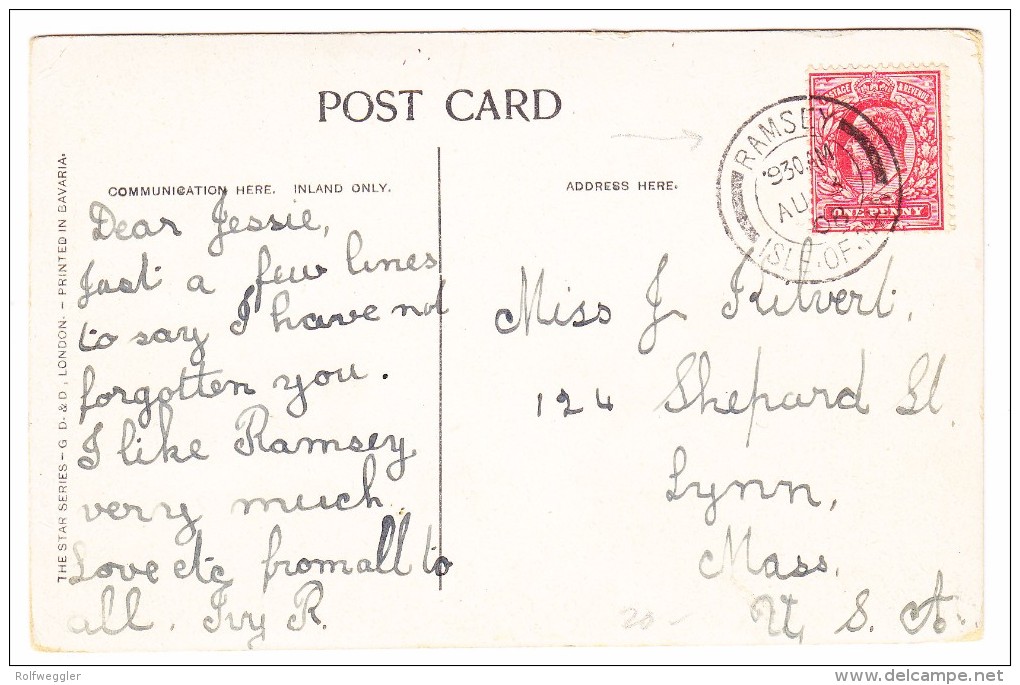 POST CARD
COMMUNICATION HERE. INLAND ONLY.
ADDRESS HERE.
THE STAR SERIES - G. D. & D., LONDON. - PRINTED IN BAVARIA.
Dear Jessie,
Just a few lines
to say I have not
forgotten you.
I like Ramsey
very much.
Love etc from all to
all. Ivy R.
POSTAGE & REVENUE
ONE PENNY
RAMSEY
930 AM
AU
ISLE. OF.
Miss J. Kilvert,
124 Shepard St
Lynn,
Mass.
U. S. A.
20-
Rolfweggler
delcampe.net